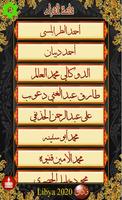 قائمة القراء
أحمد الطرابلسي
أحمد ديبان
الدوكالي محمد العالم
طارق عبد الغني دعوب
علي عبد الرحمن الحذيفي
محمد أبو سنينة
محمد الأمين قنيوة
Libya 2020 قالون